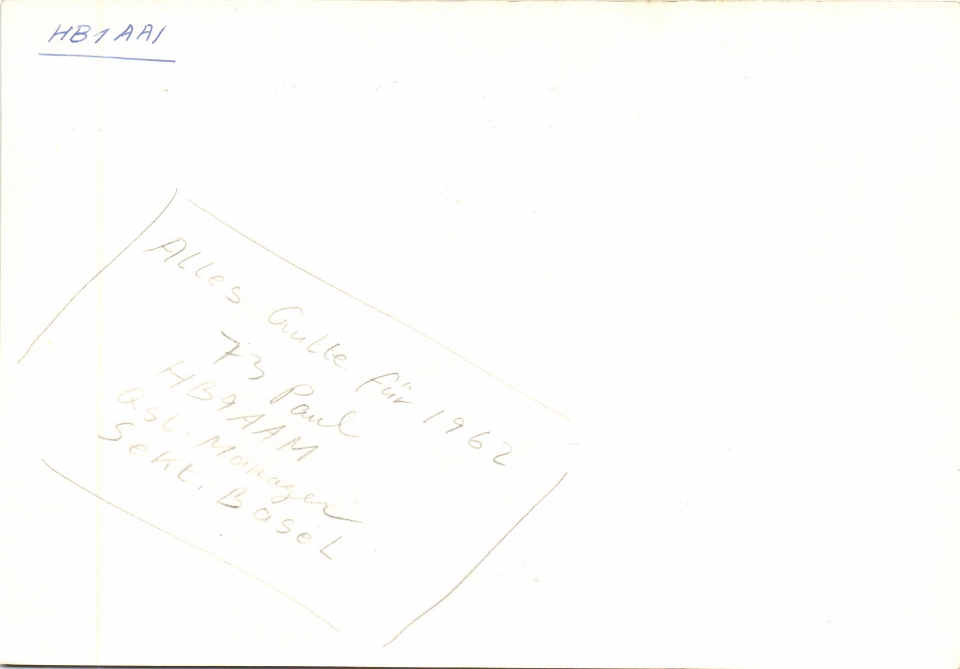 HB1AAI
Alles Gute für 1962
73 Paul
HB9AAM
QSL-Manager
Sekt. Basel